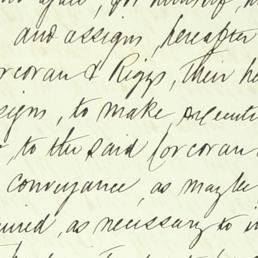 and assigns, hereafter
Corcoran & Riggs, their he
signs, to make, execute
, to the said Corcoran
conveyance, as may be
uired, as necessary to